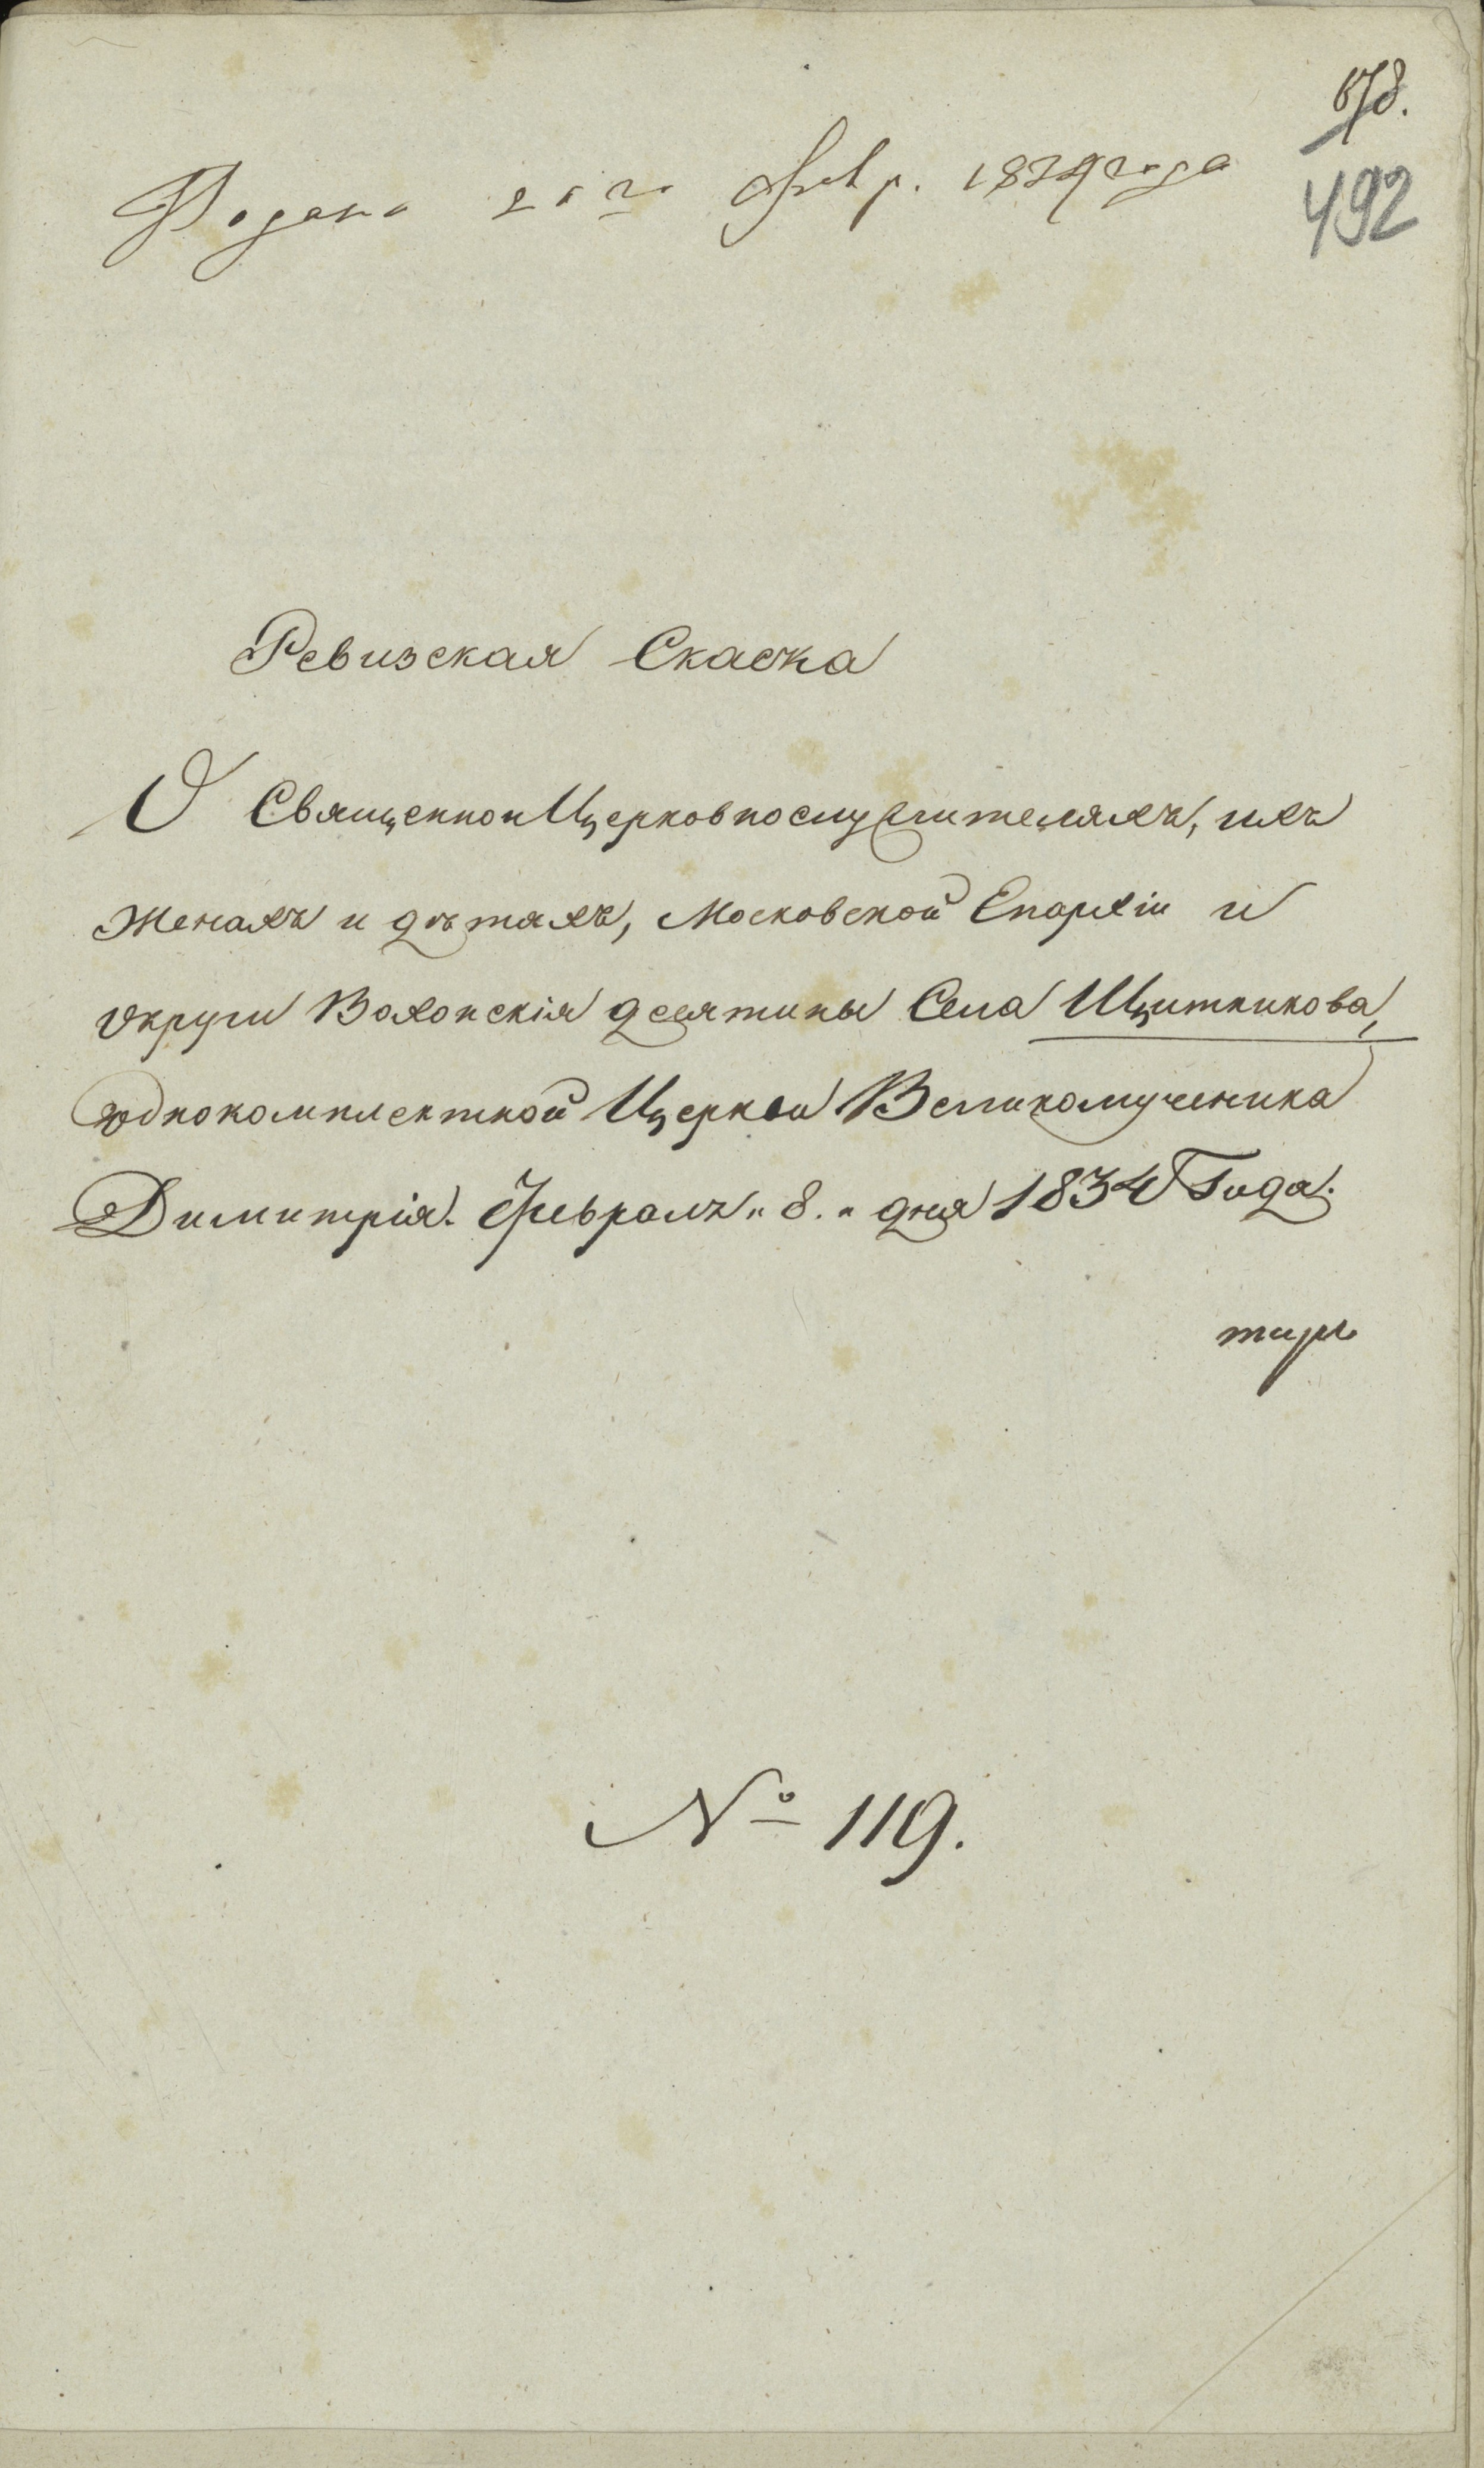 678.
492
Подана 20го Февр. 1834 года
Ревизская Скаска
О Священно и Церковнослужителяхъ, ихъ
Женахъ и дѣтяхъ, Московской Епархіи и
округи Вохонскія десятины Села Щитникова,
однокомплектной Церкви Великомученика
Димитрія. Февраля „ 8. „ дня 1834 Года.
№ 119.